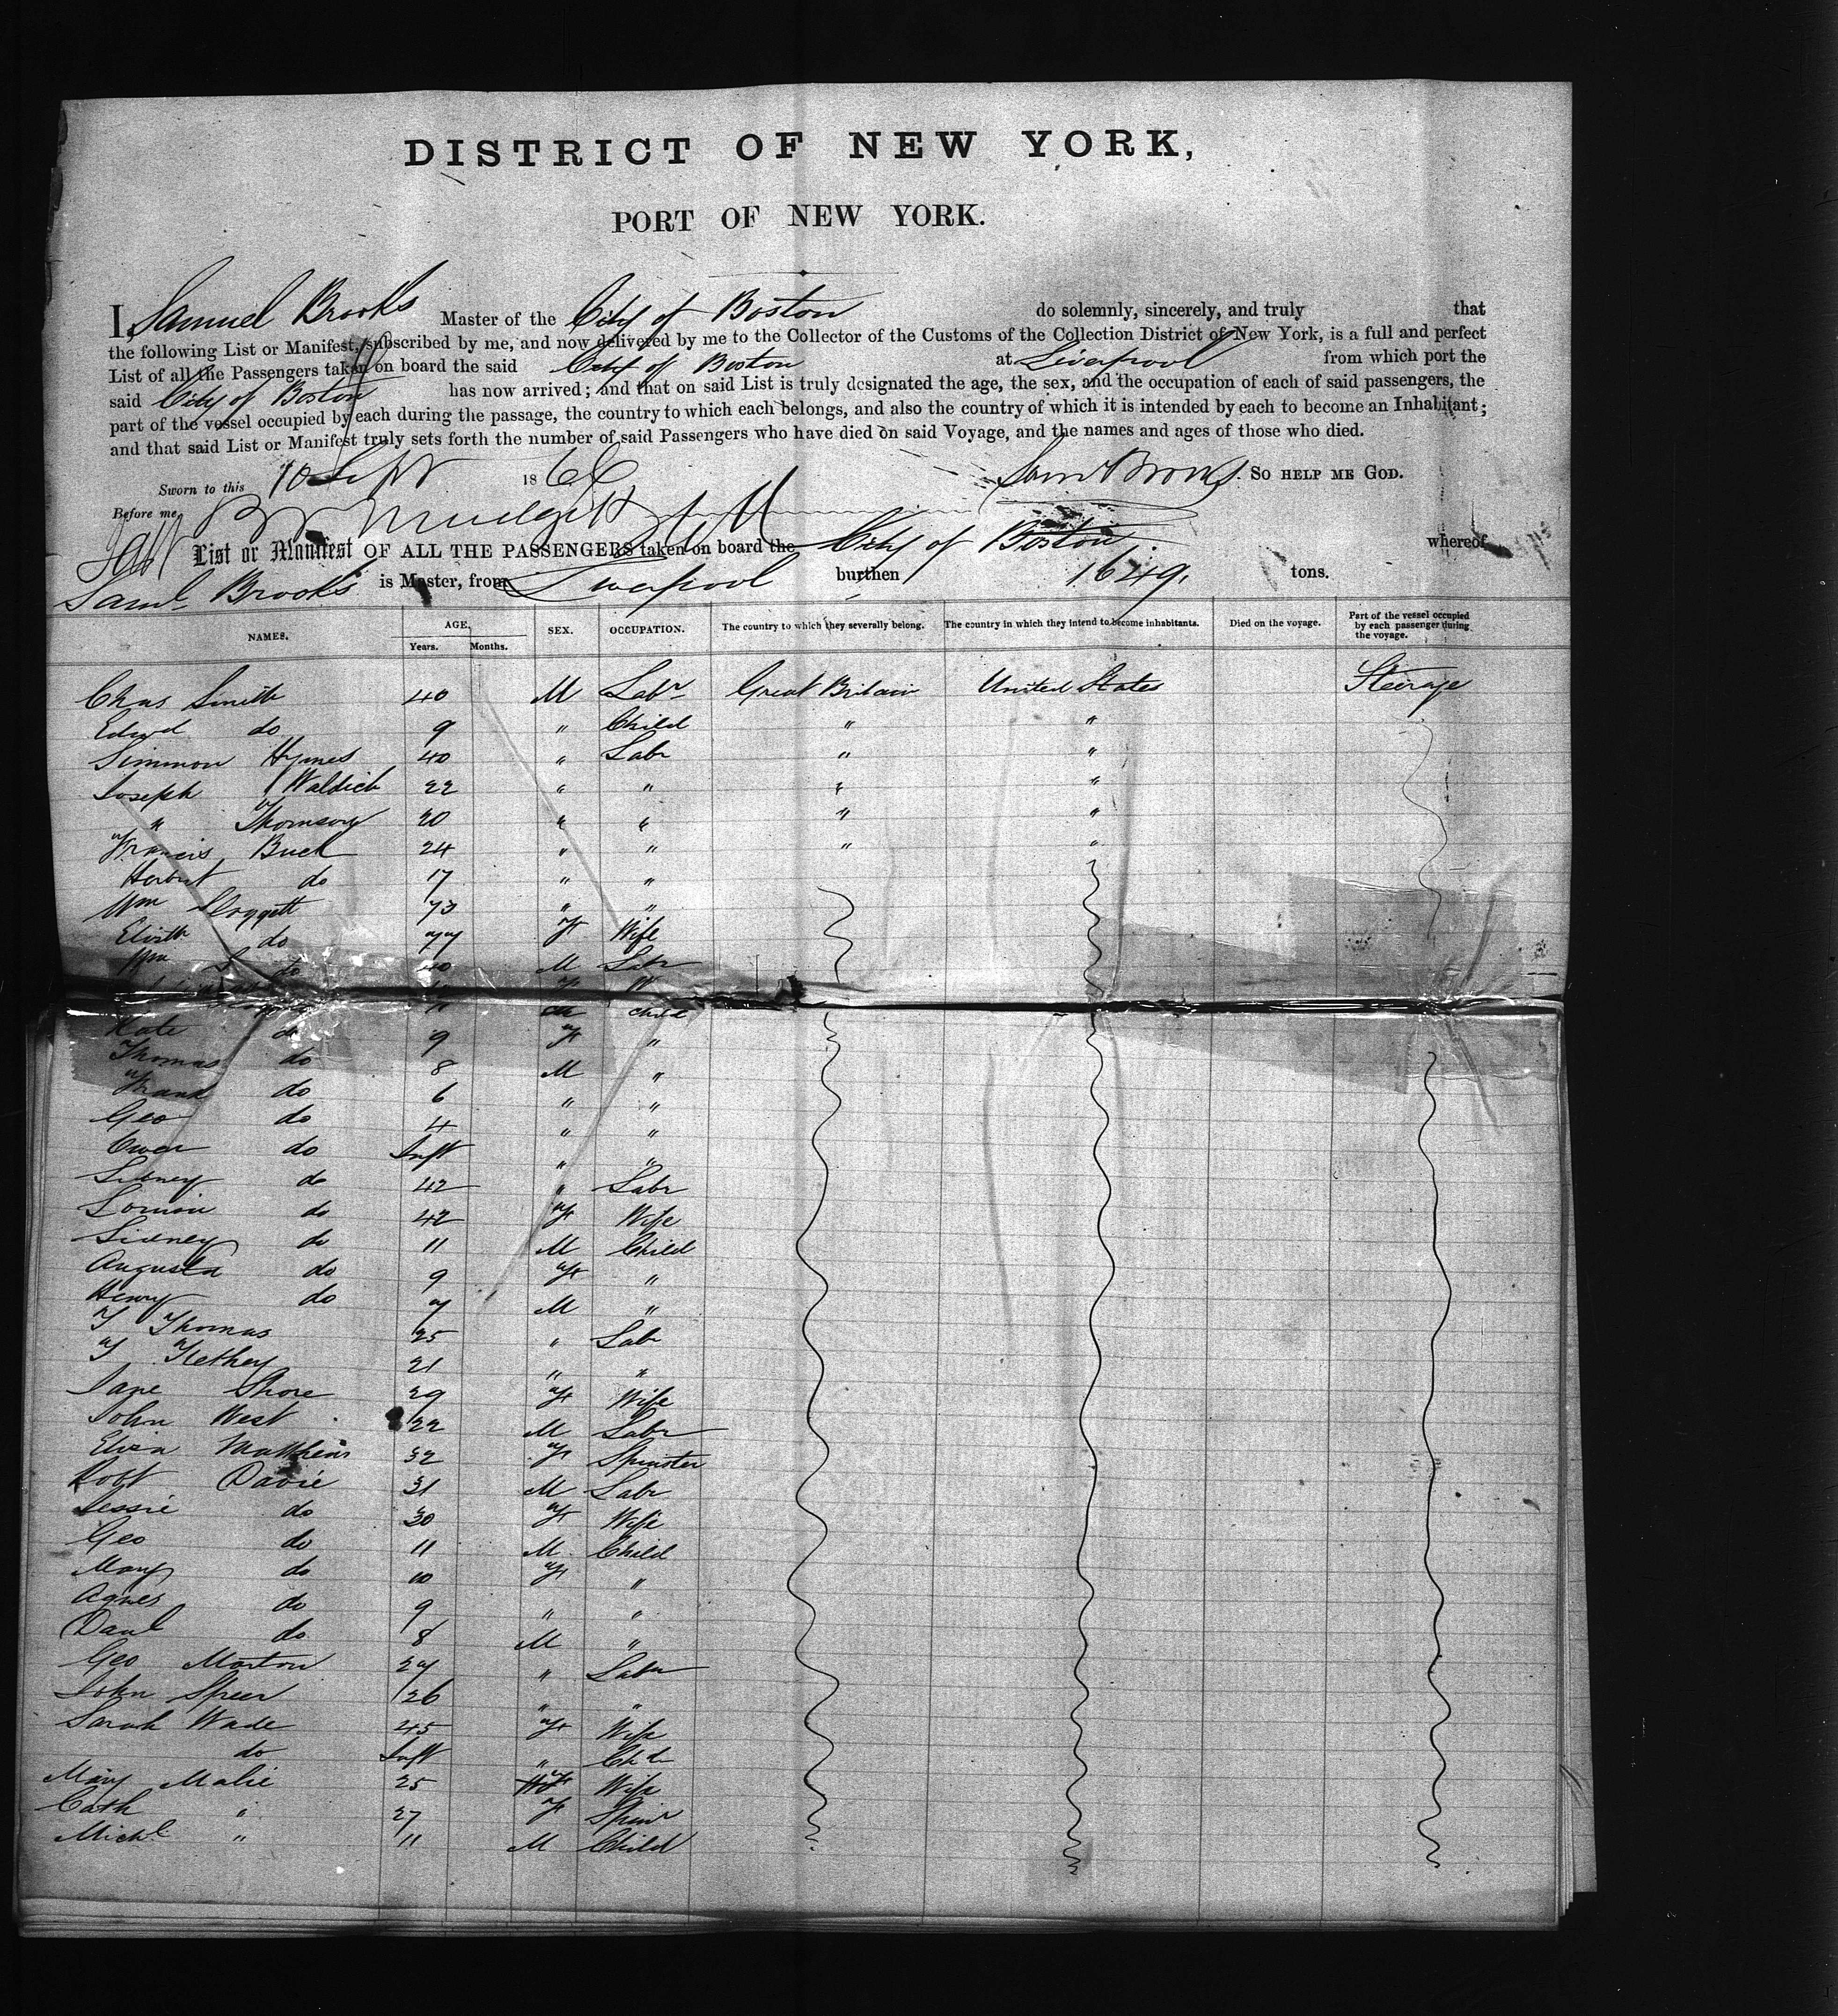 DISTRICT OF NEW YORK,
PORT OF NEW YORK.
I, Samuel Brooks Master of the City of Boston do solemnly, sincerely, and truly that
the following List or Manifest, subscribed by me, and now delivered by me to the Collector of the Customs of the Collection District of New York, is a full and perfect
List of all the Passengers taken on board the said City of Boston at Liverpool from which port the
said City of Boston has now arrived; and that on said List is truly designated the age, the sex, and the occupation of each of said passengers, the
part of the vessel occupied by each during the passage, the country to which each belongs, and also the country of which it is intended by each to become an Inhabitant;
and that said List or Manifest truly sets forth the number of said Passengers who have died on said Voyage, and the names and ages of those who died.
Sworn to this 10 Sept 186 Saml Brooks SO HELP ME GOD.
Before me, Mudgett
List or Manifest OF ALL THE PASSENGERS taken on board the City of Boston whereof
Saml Brooks is Master, from Liverpool burthen 1649, tons.
NAMES. AGE, Years. Months. SEX. OCCUPATION. The country to which they severally belong. The country in which they intend to become inhabitants. Died on the voyage. Part of the vessel occupied by each passenger during the voyage.
Chas Smith 40 M Labr Great Britain United States Steerage
Edwd do 9 " Child " "
Simmon Hymes 40 " Labr " "
Joseph Waldich 22 " " " "
" Thomson 20 " " " "
Francis Buck 24 " " " "
Herbert do 17 " "
Wm Sloggett 73 " "
Elizth do 77 F Wife
Wm do 40 M Labr
11 Child
Kate do 9 F "
Thomas do 8 M "
Frank do 6 " "
Geo do 4 " "
Owen do Inft " "
Sidney do 42 " Labr
do 42 F Wife
Sidney do 11 M Child
Augusta do 9 F "
Henry do 7 M "
T Thomas 25 " Labr
T Tlethey 21 " "
Jane Shore 29 F Wife
John West 22 M Labr
Eliza Matthews 32 F Spinster
Robt Davie 31 M Labr
Jessie do 30 F Wife
Geo do 11 M Child
Mary do 10 F "
Agnes do 9 " "
Danl do 8 M "
Geo Morton 27 " Labr
John Speer 26 " "
Sarah Wade 45 F Wife
do Inft " Chd
Mary Malie 25 F Wife
Cath " 27 F Spinr
Michl " 11 M Child